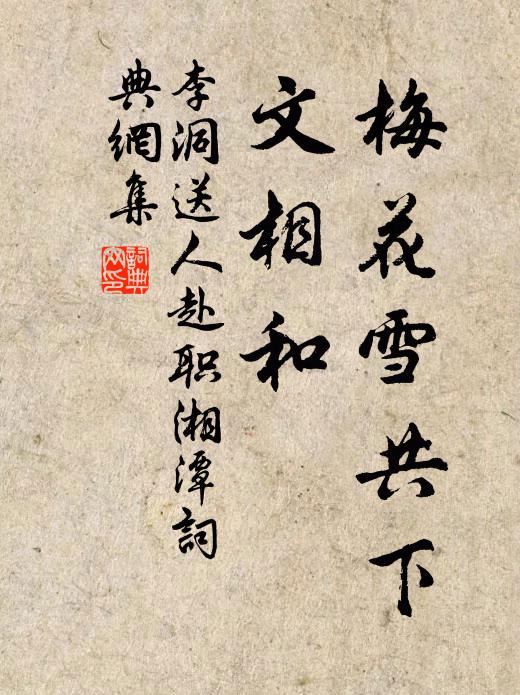 梅花雪共下
文相和
李洞送人赴职湘潭詞
典網集
詞典